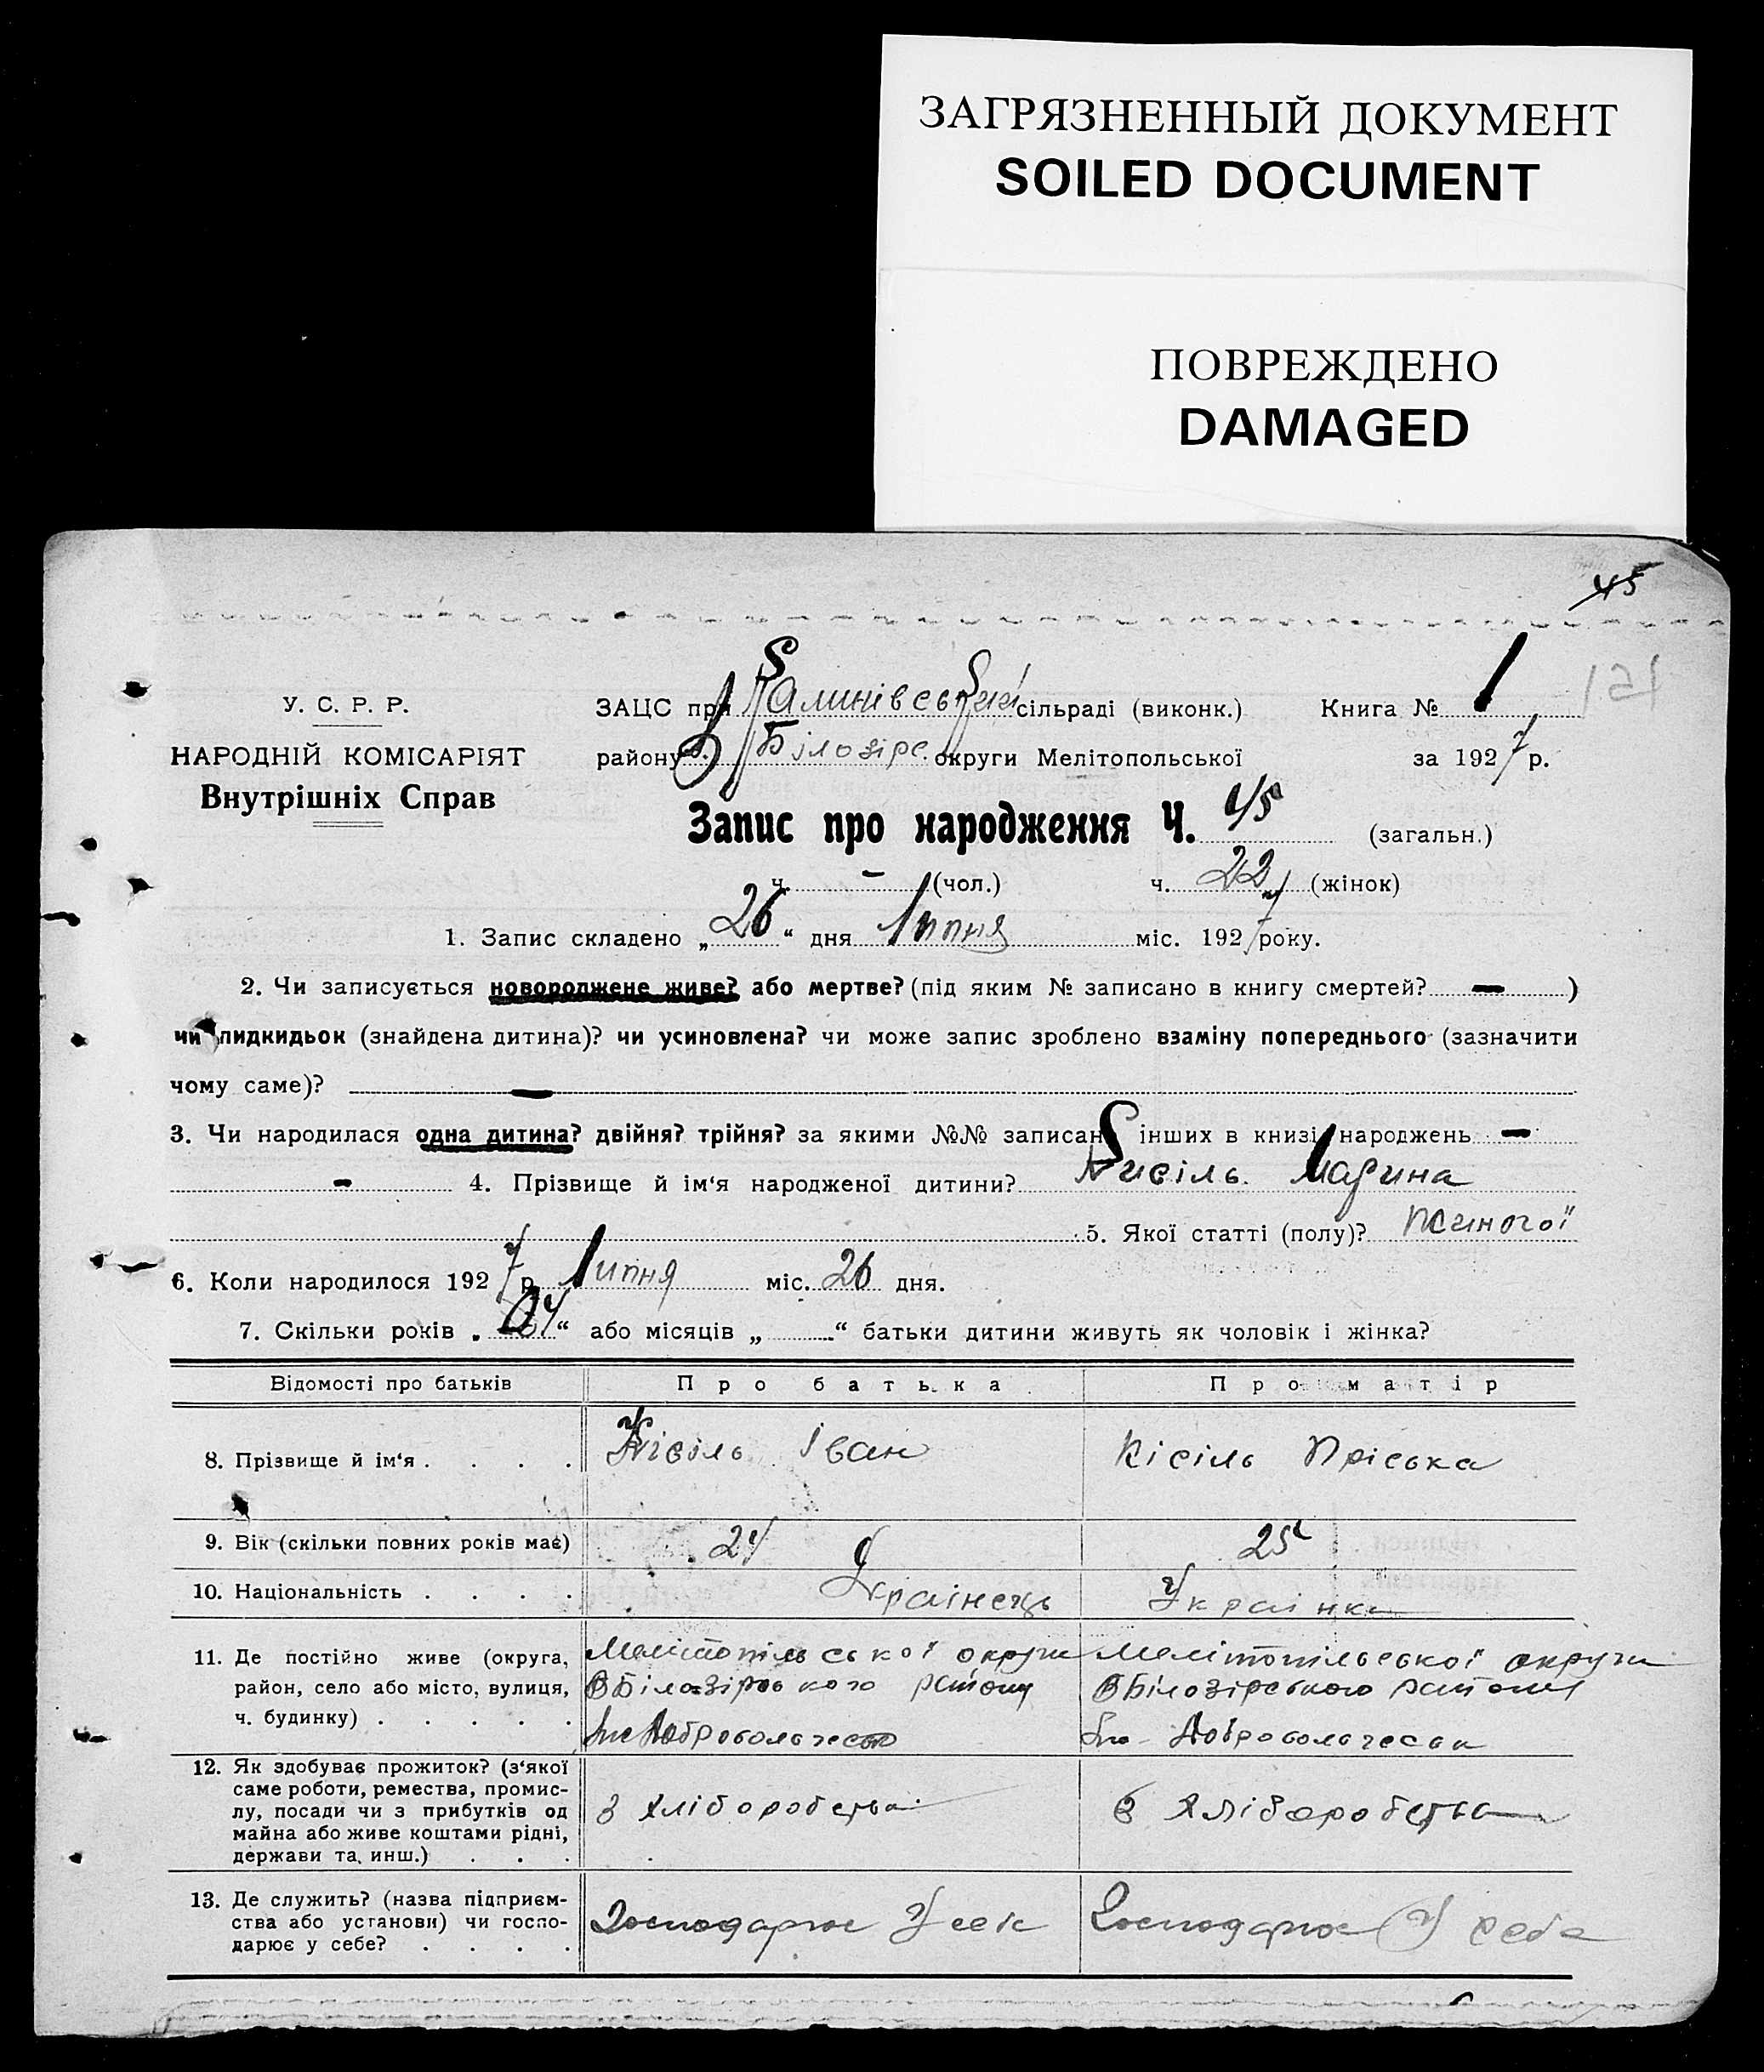 ЗАГРЯЗНЕННЫЙ ДОКУМЕНТ
SOILED DOCUMENT
ПОВРЕЖДЕНО
DAMAGED
45
У. С. Р. Р.
НАРОДНІЙ КОМІСАРІЯТ
Внутрішніх Справ
ЗАЦС при Калинівській сільраді (виконк.) Книга № 1
151
району В Білозірс. округи Мелітопольської за 1927 р.
Запис про народження Ч. 45 (загальн.)
ч. – (чол.) ч. 22 (жінок)
1. Запис складено „26“ дня Липня міс. 1927 року.
2. Чи записується новороджене живе? або мертве? (під яким № записано в книгу смертей? – )
чи підкидьок (знайдена дитина)? чи усиновлена? чи може запис зроблено взаміну попереднього (зазначити
чому саме)? –
3. Чи народилася одна дитина? двійня? трійня? за якими №№ записан інших в книзі народжень –
– 4. Прізвище й ім‘я народженої дитини? Кисіль Марина
5. Якої статті (полу)? жиночої
6. Коли народилося 1927 р. Липня міс. 26 дня.
7. Скільки років „ “ або місяців „ “ батьки дитини живуть як чоловік і жінка?
Відомості про батьків Про батька Про матір
8. Прізвище й ім‘я . . . . Кісіль Іван Кісіль Пріська
9. Вік (скільки повних років має) 24 25
10. Національність . . . . Украінець Украінка
11. Де постійно живе (округа, район, село або місто, вулиця, ч. будинку) . . . . .
Мелітопільської округи Мелітопільської округи
ВБілозірського району ВБілозірського району
12. Як здобуває прожиток? (з‘якої
саме роботи, ремества, промис-
лу, посади чи з прибутків од
майна або живе коштами рідні,
держави та инш.) . . .
З хліборобства З хліборобства
13. Де служить? (назва підприєм-
ства або установи) чи госпо-
дарює у себе? . . . .
Господарює У себе Господарює У себе